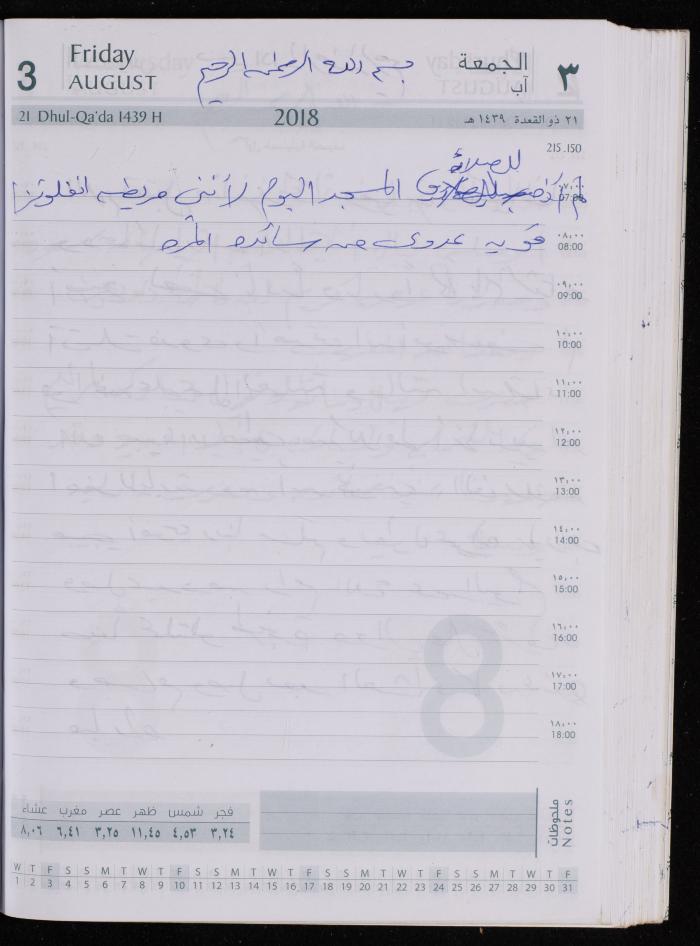 3
Friday
AUGUST
بسم الله الرحمن الرحيم
الجمعة
آب
٣
21 Dhul-Qa'da 1439 H
2018
٢١ ذو القعدة ١٤٣٩ هـ
215.150
للصلاة
لم أذهب المسجد اليوم لأنني مريض انفلونزا
قويه عدوى من سائق
٠٧:٠٠
07:00
٠٨:٠٠
08:00
٠٩:٠٠
09:00
١٠:٠٠
10:00
١١:٠٠
11:00
١٢:٠٠
12:00
١٣:٠٠
13:00
١٤:٠٠
14:00
١٥:٠٠
15:00
١٦:٠٠
16:00
١٧:٠٠
17:00
١٨:٠٠
18:00
8
فجر شمس ظهر عصر مغرب عشاء
٣,٢٤ ٤,٥٣ ١١,٤٥ ٣,٢٥ ٦,٤١ ٨,٠٦
ملحوظات
Notes
W T F S S M T W T F S S M T W T F S S M T W T F S S M T W T F
1 2 3 4 5 6 7 8 9 10 11 12 13 14 15 16 17 18 19 20 21 22 23 24 25 26 27 28 29 30 31